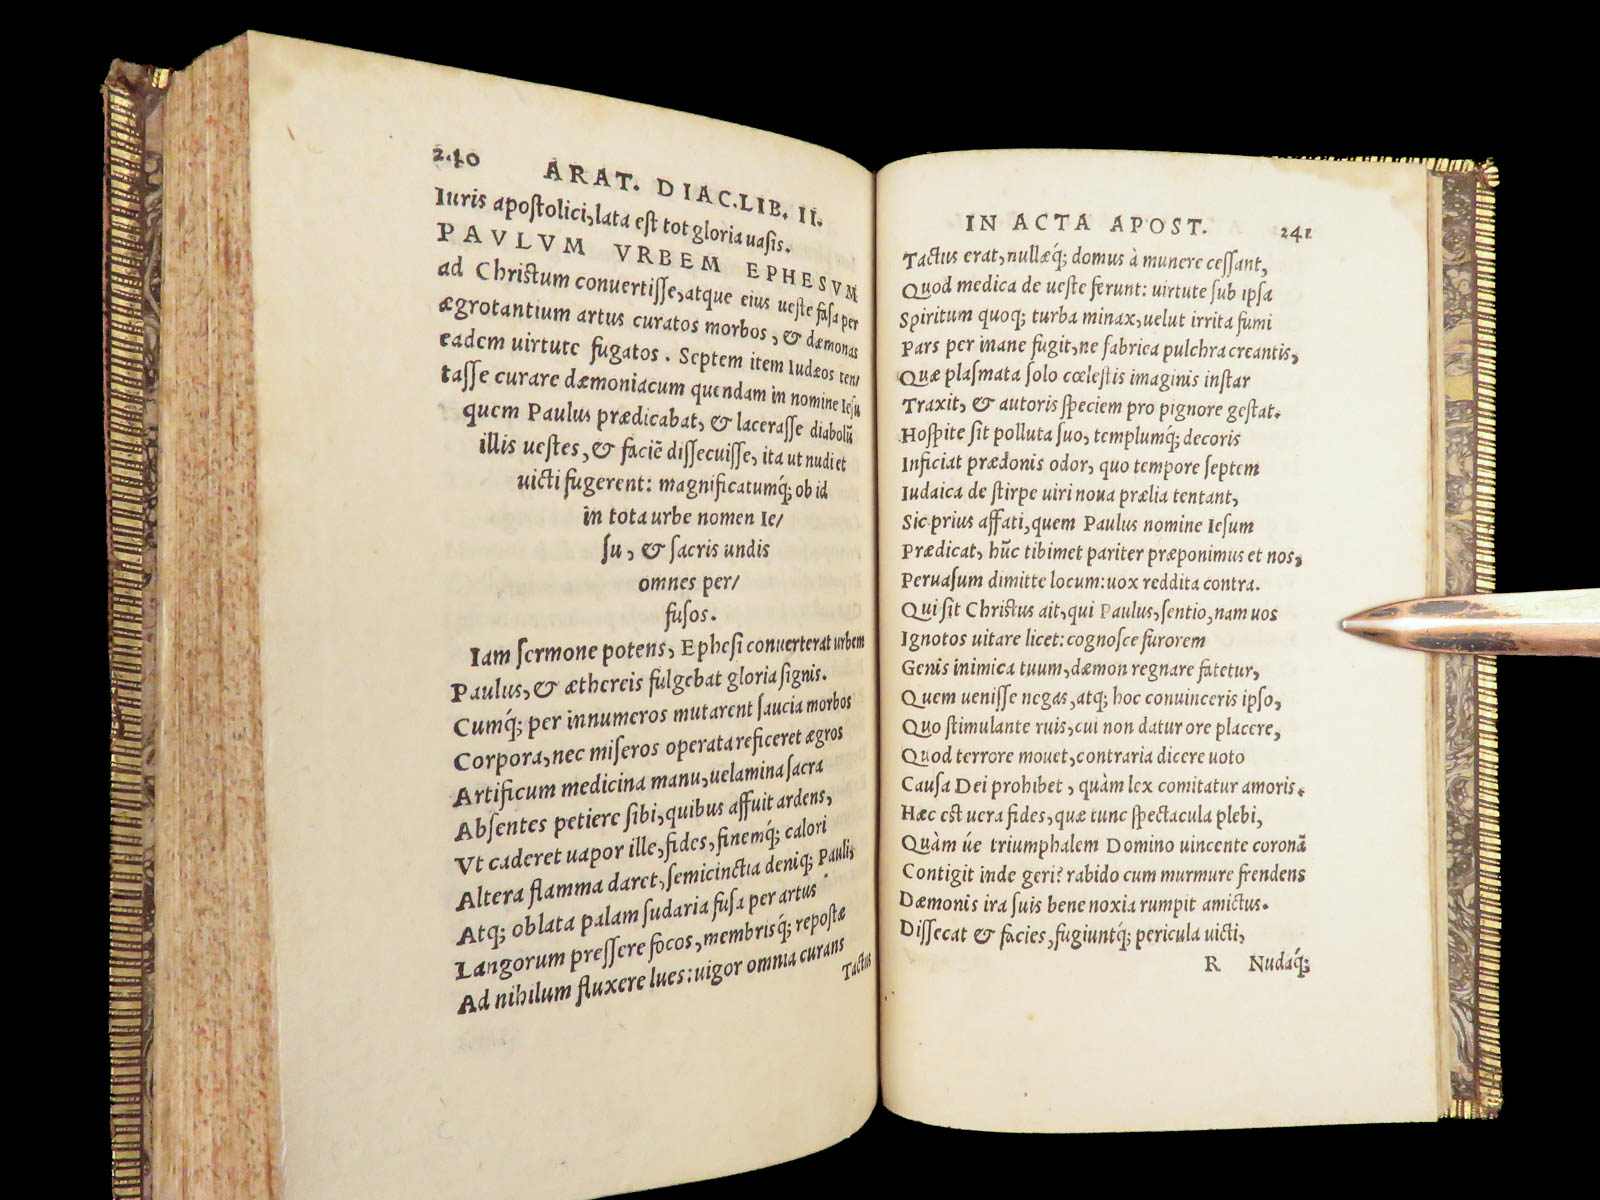 240 ARAT. DIAC.LIB. II.
Iuris apoſtolici,lata eſt tot gloria uaſis.
PAVLVM VRBEM EPHESVM
ad Chriſtum conuertiſſe,atque eius ueſte fuſa per
ægrotantium artus curatos morbos, & dæmonas
eadem uirtute fugatos. Septem item Iudæos ten/
taſſe curare dæmoniacum quendam in nomine Ieſu
quem Paulus prædicabat, & laceraſſe diabolũ
illis ueſtes, & faciẽ diſſecuiſſe, ita ut nudi et
uicti fugerent: magnificatumq́; ob id
in tota urbe nomen Ie/
ſu, & ſacris undis
omnes per/
fuſos.
Iam ſermone potens, Epheſi conuerterat urbem
Paulus, & æthereis fulgebat gloria ſignis.
Cumq́; per innumeros mutarent ſaucia morbos
Corpora,nec miſeros operata reficeret ægros
Artificum medicina manu,uelamina ſacra
Abſentes petiere ſibi,quibus affuit ardens,
Vt caderet uapor ille, fides, finemq́; calori
Altera flamma daret, ſemicinctia deniq; Paulis
Atq; oblata palam ſudaria fuſa per artus
Langorum preſſere focos, membrisq́; repoſtæ
Ad nihilum fluxere lues: uigor omnia curans
Tactus
IN ACTA APOST. 241
Tactus erat, nullæq́; domus à munere ceſſant,
Quod medica de ueſte ferunt: uirtute ſub ipſa
Spiritum quoq; turba minax,uelut irrita fumi
Pars per inane fugit,ne fabrica pulchra creantis,
Quæ plaſmata ſolo cœleſtis imaginis inſtar
Traxit, & autoris ſpeciem pro pignore geſtat.
Hoſpite ſit polluta ſuo, templumq́; decoris
Inficiat prædonis odor, quo tempore ſeptem
Iudaica de ſtirpe uiri noua prælia tentant,
Sic prius affati,quem Paulus nomine Ieſum
Prædicat, hũc tibimet pariter præponimus et nos,
Peruaſum dimitte locum:uox reddita contra.
Qui ſit Chriſtus ait,qui Paulus,ſentio,nam uos
Ignotos uitare licet: cognoſce furorem
Genis inimica tuum, dæmon regnare fatetur,
Quem ueniſſe negas,atq; hoc conuinceris ipſo,
Quo ſtimulante ruis,cui non datur ore placere,
Quod terrore mouet,contraria dicere uoto
Cauſa Dei prohibet, quàm lex comitatur amoris.
Hæc eſt uera fides,quæ tunc ſpectacula plebi,
Quàm úe triumphalem Domino uincente coronã
Contigit inde geri? rabido cum murmure frendens
Dæmonis ira ſuis bene noxia rumpit amictus.
Diſſecat & facies,fugiuntq́; pericula uicti,
R Nudaq́;